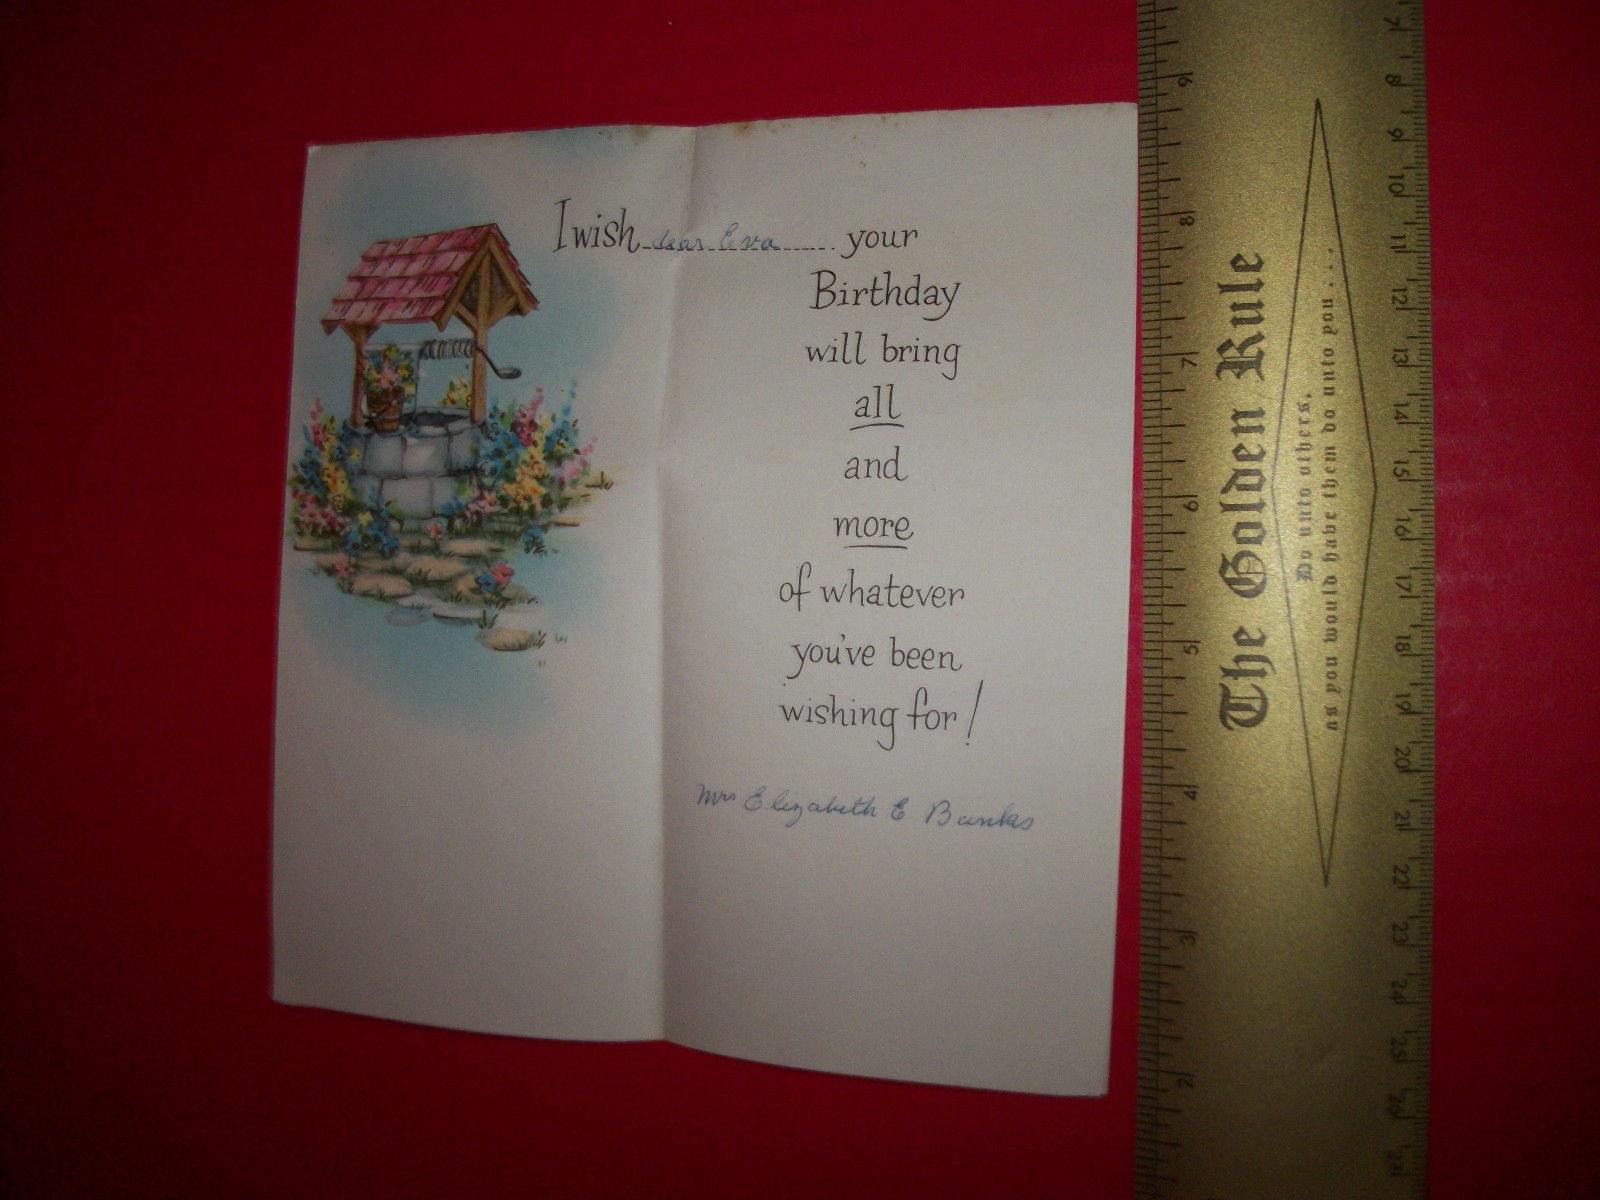 I wish dear Eva your
Birthday
will bring
all
and
more
of whatever
you've been
wishing for!
Mrs Elizabeth E Banks
The Golden Rule
Do unto others,
as you would have them do unto you....
9
8
7
6
5
4
3
2
7
8
9
10
11
12
13
14
15
16
17
18
19
20
21
22
23
24
25
26